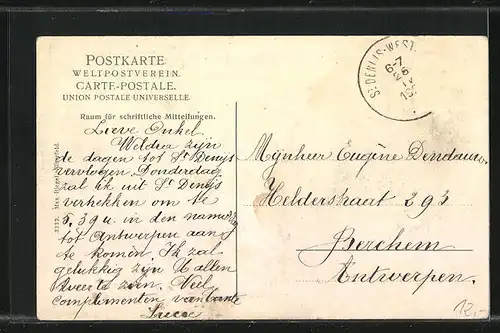 POSTKARTE
WELTPOSTVEREIN.
CARTE-POSTALE.
UNION POSTALE UNIVERSELLE.
Raum für schriftliche Mitteilungen.
Lieve Onkel.
Weldra zijn
de dagen tot St Denijs
vervlogen. Donderdag
zal ik uit St Denijs
vertrekken om te
5,39 u. in den namiddag
tot Antwerpen aan
te komen. Ik zal
gelukkig zijn U allen
weer te zien. Veel
complementen van tante
ST DENIJS-WEST
6-7
26
IX
Mijnheer Eugène
Helderstraat 293
Berchem
Antwerpen.
12,-